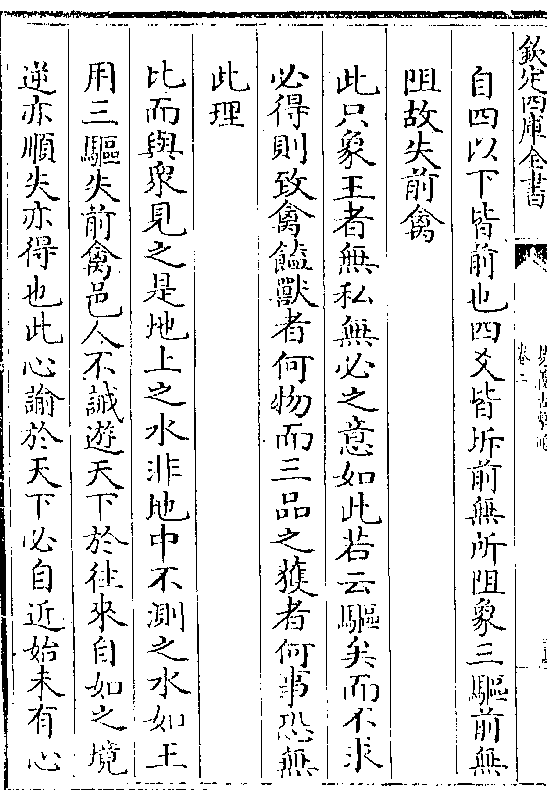 欽定四庫全書
卷二
自四以下皆前也四爻皆坼前無所阻象三驅前無
阻故失前禽
此只象王者無私無必之意如此若云驅矣而不求
必得則致禽饁獸者何物而三品之獲者何事恐無
此理
比而與衆見之是地上之水非地中不測之水如王
用三驅失前禽邑人不誡遊天下於往來自如之境
逆亦順失亦得也此心諭於天下必自近始未有心